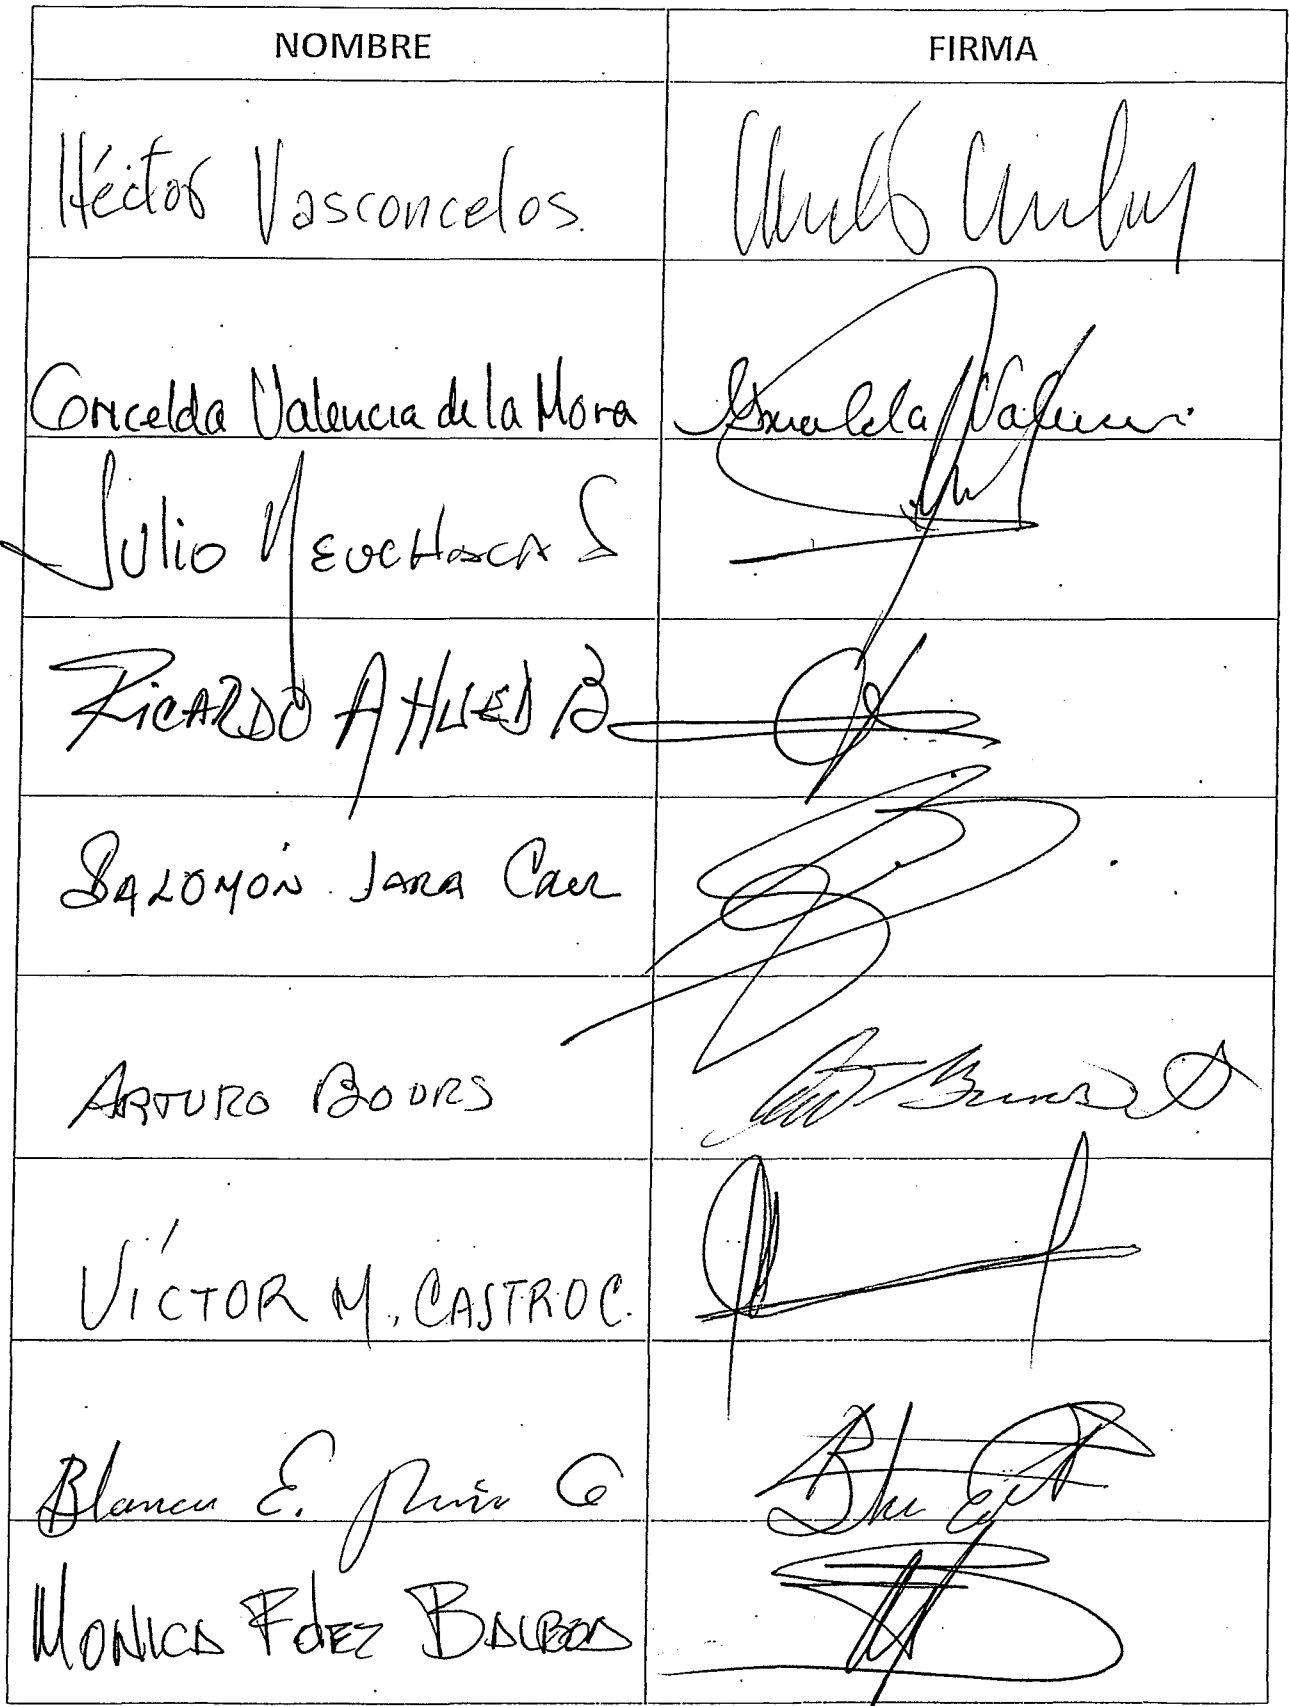 NOMBRE FIRMA
Héctor Vasconcelos.
Gricelda Valencia de la Mora Griselda Valencia
Julio Menchaca S
RICARDO AHUED B
SALOMÓN JARA Cruz
ARTURO BOURS
VÍCTOR M. CASTRO C.
Blanca E. Piña G
MONICA Fdez BALBOA